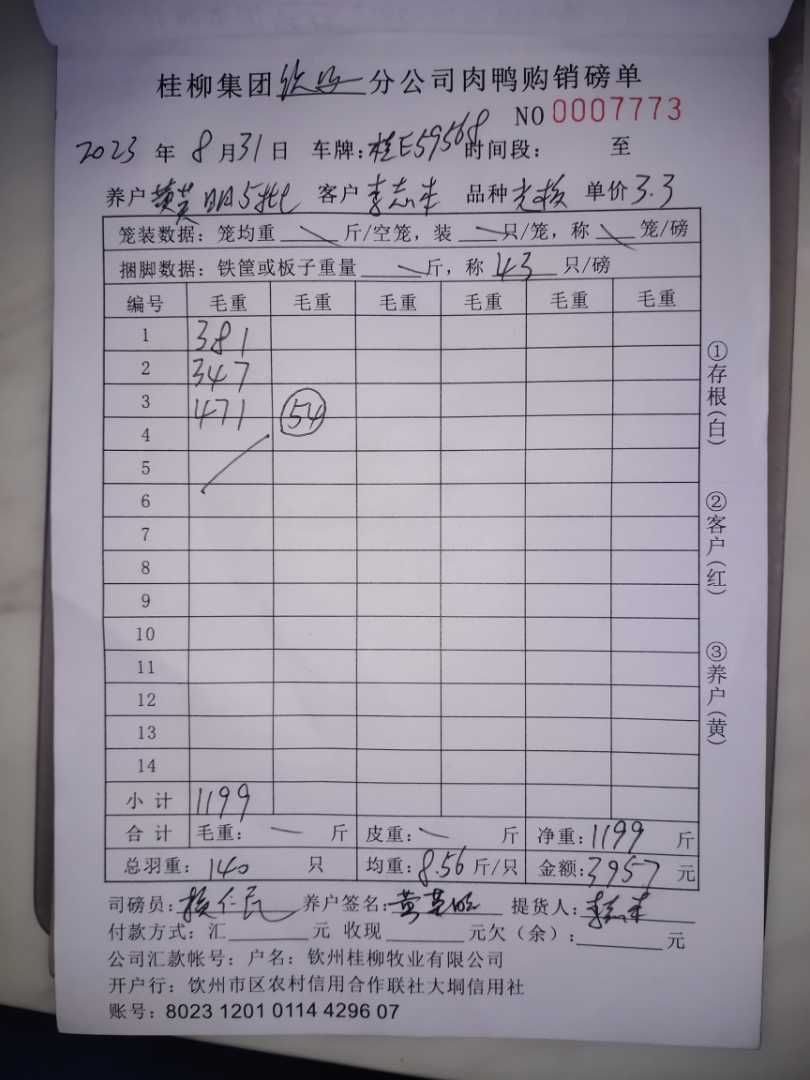 桂柳集团钦州分公司肉鸭购销磅单
NO 0007773
2023 年 8 月 31 日 车牌:桂E59568 时间段: 至
养户 黄英明5批 客户 李志丰 品种 单价 3.3
笼装数据:笼均重 斤/空笼,装 只/笼,称 笼/磅
捆脚数据:铁筐或板子重量 斤,称 43 只/磅
编号 毛重 毛重 毛重 毛重 毛重 毛重
1 381
2 347
3 471 54
4
5
6
7
8
9
10
11
12
13
14
小 计 1199
合 计 毛重: 斤 皮重: 斤 净重:1199 斤
总羽重: 140 只 均重:8.56 斤/只 金额:3957 元
司磅员: 养户签名: 黄英明 提货人:李志丰
付款方式:汇 元 收现 元欠(余): 元
公司汇款帐号:户名:钦州桂柳牧业有限公司
开户行:钦州市区农村信用合作联社大垌信用社
账号:8023 1201 0114 4296 07
①存根(白)
②客户(红)
③养户(黄)